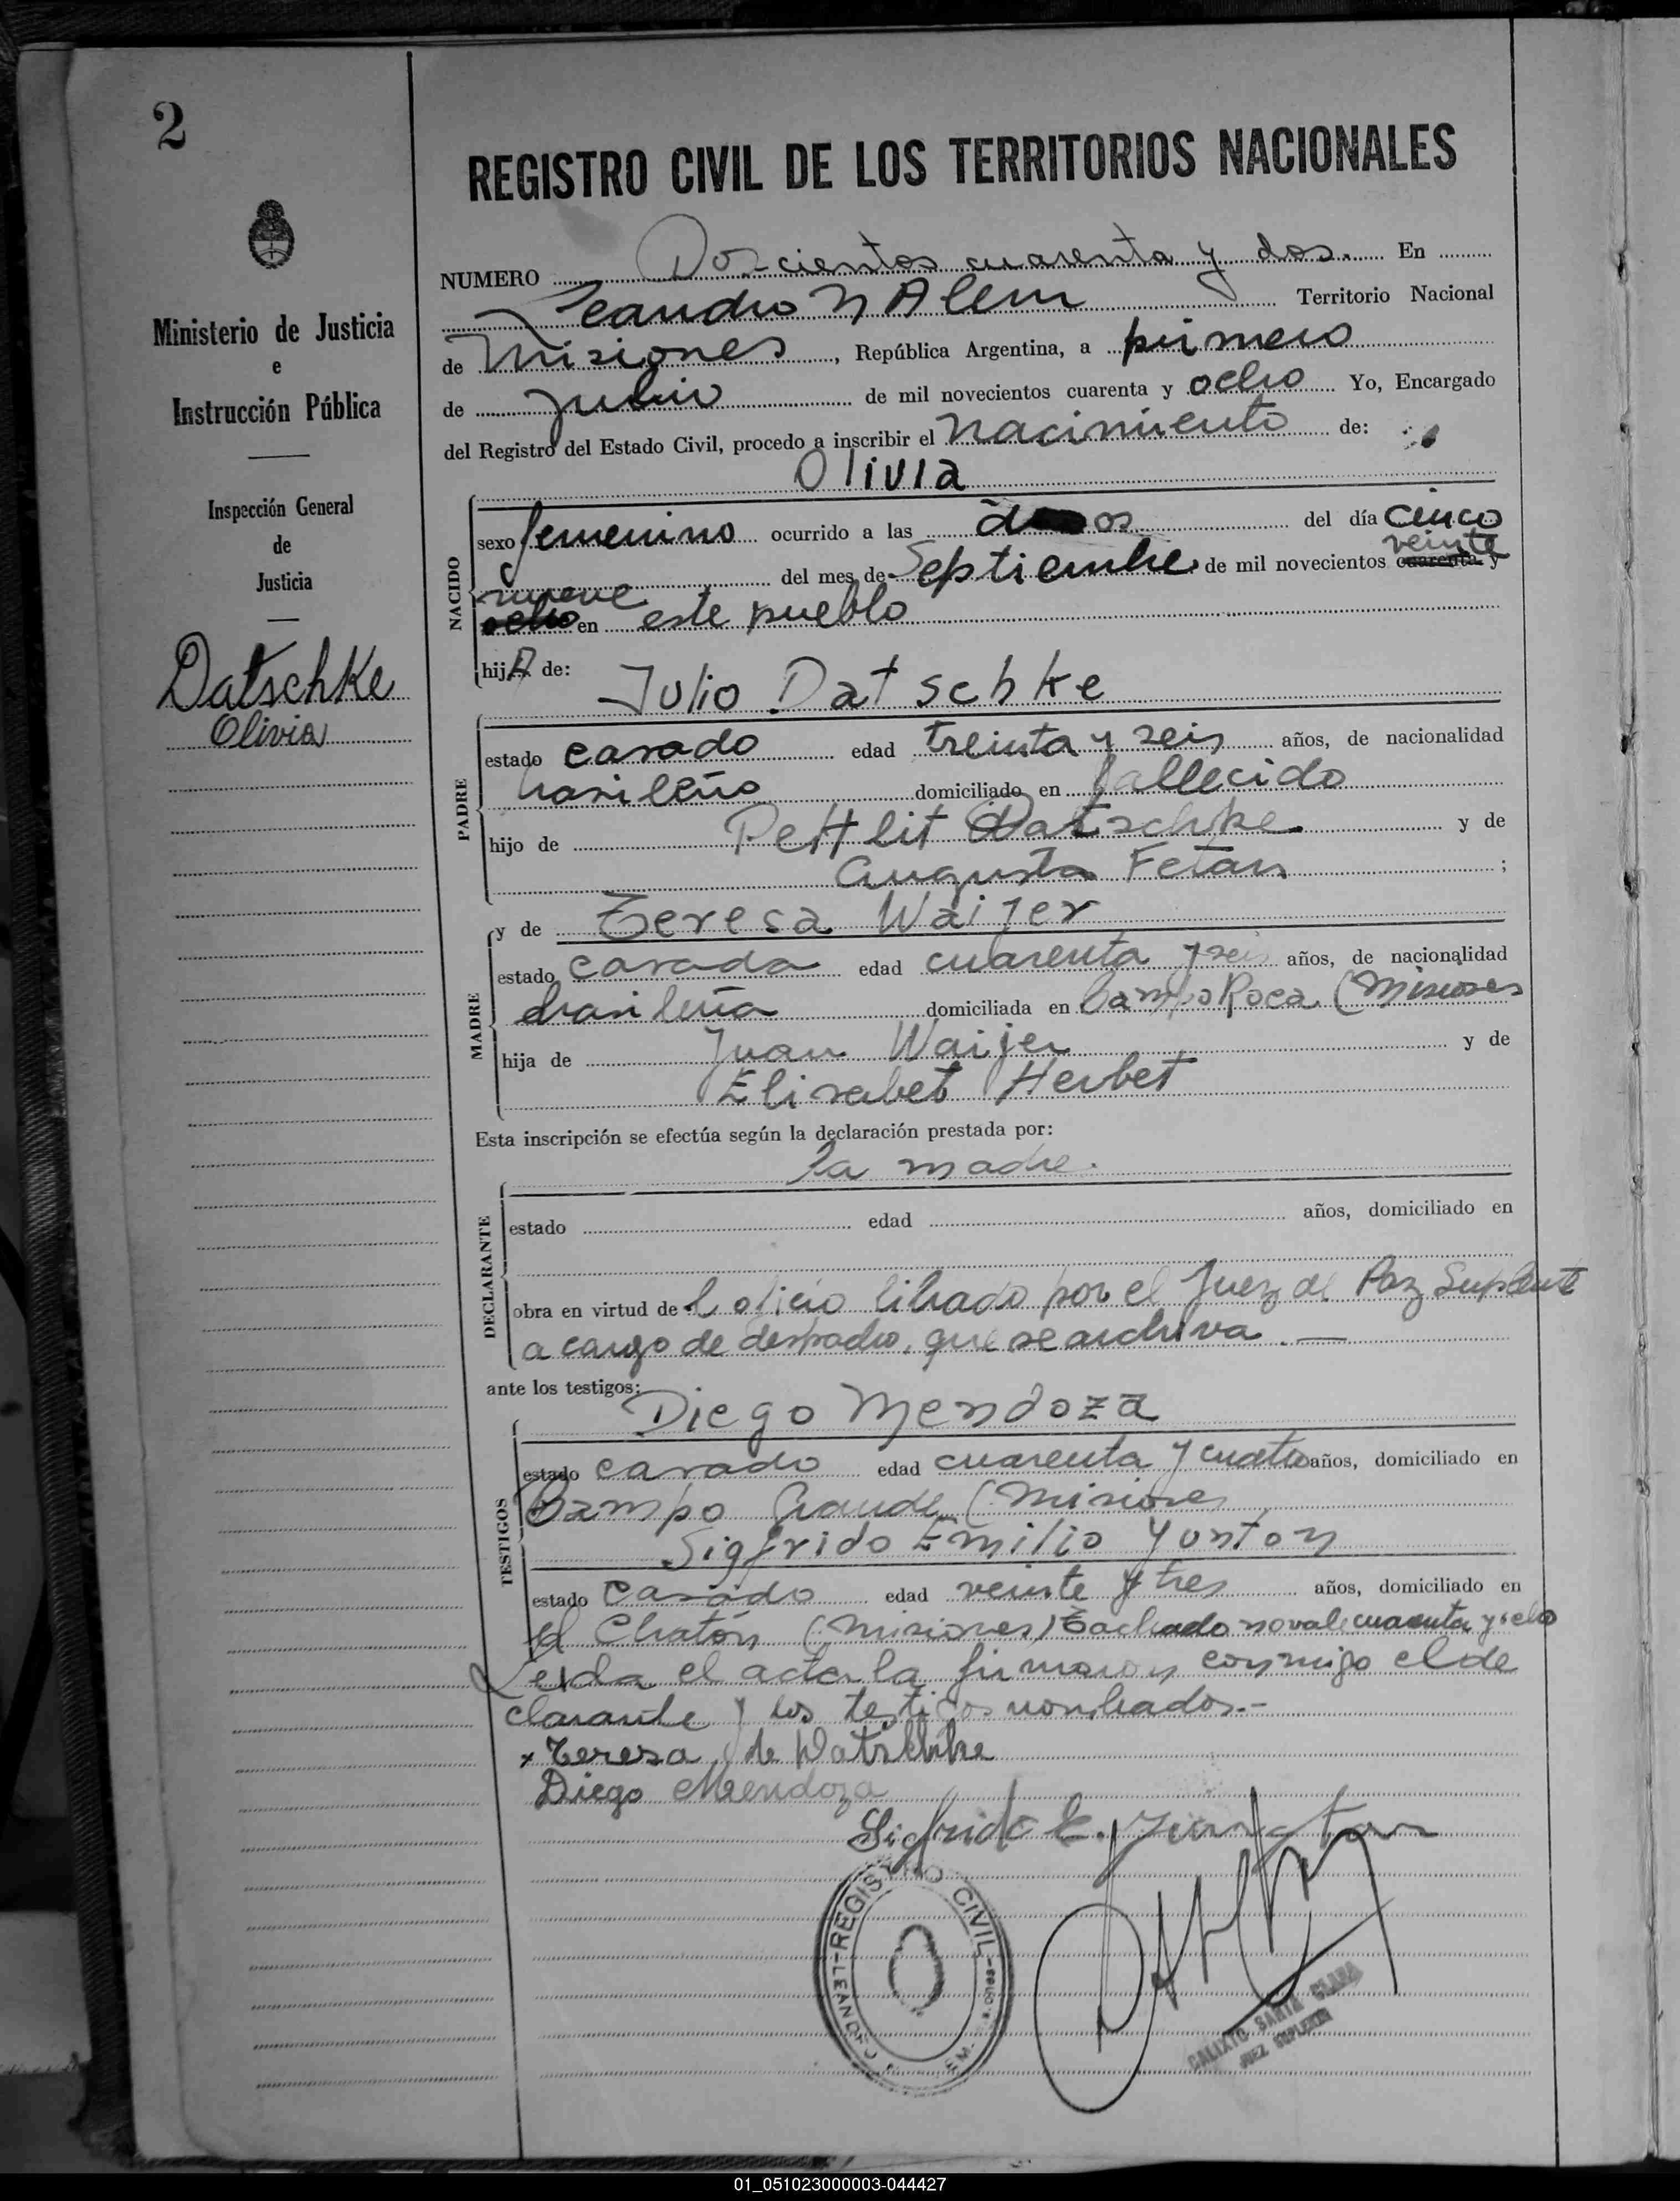 2
REGISTRO CIVIL DE LOS TERRITORIOS NACIONALES
Ministerio de Justicia
e
Instrucción Pública
Inspección General
de
Justicia
Datschke
Olivia
NUMERO Doscientos cuarenta y dos. En
Leandro N Alem Territorio Nacional
de Misiones, República Argentina, a primero
de Julio de mil novecientos cuarenta y ocho Yo, Encargado
del Registro del Estado Civil, procedo a inscribir el nacimiento de:
Olivia
NACIDO
sexo femenino ocurrido a las dos del día cinco
veinte
del mes de Septiembre de mil novecientos cuarenta y
nueve
ocho en este pueblo
hijA de:
Julio Datschke
PADRE
estado casado edad treinta y seis años, de nacionalidad
brasileño domiciliado en fallecido
hijo de Pettlit Datschke y de
Augusta Fetan ;
y de Teresa Waijer
MADRE
estado casada edad cuarenta y seis años, de nacionalidad
brasileña domiciliada en Campo Roca (Misiones
hija de Juan Waijer y de
Elisabet Herbet
Esta inscripción se efectúa según la declaración prestada por:
la madre.
DECLARANTE
estado edad años, domiciliado en
obra en virtud del oficio librado por el Juez de Paz Suplente
a cargo de despacho, que se archiva. —
ante los testigos:
Diego Mendoza
TESTIGOS
estado casado edad cuarenta y cuatro años, domiciliado en
Campo Grande (Misiones
Sigfrido Emilio Yunton
estado casado edad veinte y tres años, domiciliado en
el Chatón (Misiones) Tachado no vale cuarenta y ocho
Leida el acta la firmaron conmigo el de
clarante y los testigos nombrados.-
x Teresa de Datschke
Diego Mendoza
Sigfrido E. Jungton
REGISTRO CIVIL
LEANDRO N. ALEM
CALIXTO SANTA CLARA
JUEZ SUPLENTE
01_051023000003-044427